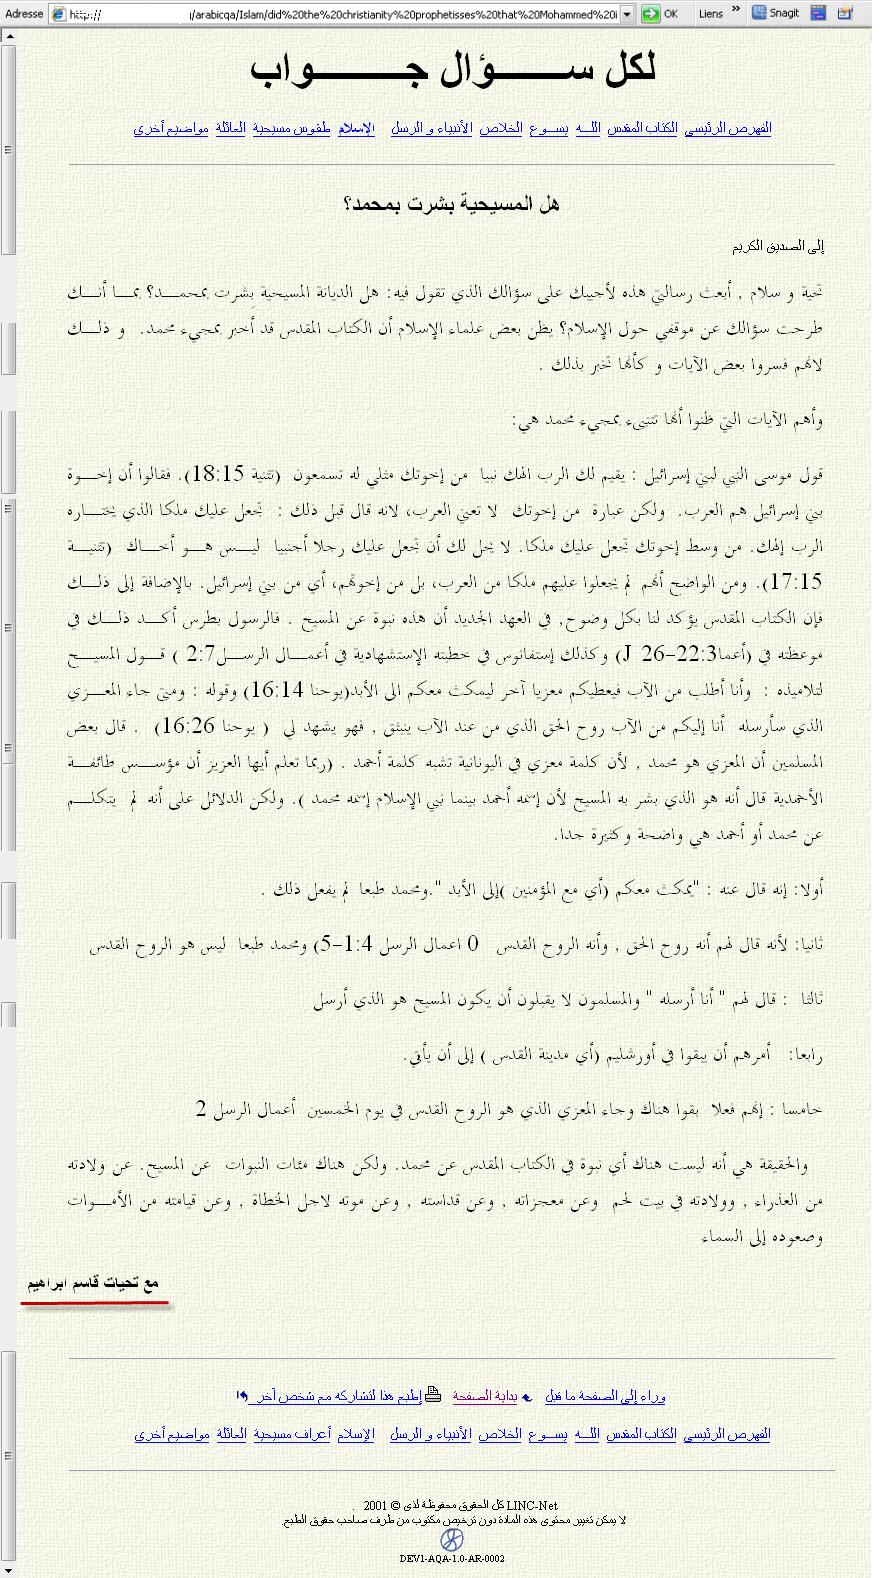 Adresse http:// ı/arabicqa/Islam/did%20the%20christianity%20prophetisses%20that%20Mohammed%20i OK Liens » Snagit
لكل ســـؤال جـــواب
الفهرص الرئيسي الكتاب المقدس اللـه يسـوع الخلاص الأنبياء و الرسل الإسلام طقوس مسيحية العائلة مواضيع أخرى
هل المسيحية بشرت بمحمد؟
إلى الصديق الكريم
تحية و سلام , أبعث رسالتي هذه لأجيبك على سؤالك الذي تقول فيه: هل الديانة المسيحية بشرت بمحمـد؟ بمـا أنـك
طرحت سؤالك عن موقفي حول الإسلام؟ يظن بعض علماء الإسلام أن الكتاب المقدس قد أخبر بمجيء محمد. و ذلـك
لانهم فسروا بعض الآيات و كأنها تخبر بذلك .
وأهم الآيات التي ظنوا أنها تتنبىء بمجيء محمد هي:
قول موسى النبي لبني إسرائيل : يقيم لك الرب الهك نبيا من إخوتك مثلي له تسمعون (تثنية 18:15). فقالوا أن إخـوة
بني إسرائيل هم العرب. ولكن عبارة من إخوتك لا تعني العرب، لانه قال قبل ذلك : تجعل عليك ملكا الذي يختـاره
الرب إلهك. من وسط إخوتك تجعل عليك ملكا. لا يحل لك أن تجعل عليك رجلا أجنبيا ليـس هـو أخـاك (تثنيـة
17:15). ومن الواضح أنهم لم يجعلوا عليهم ملكا من العرب، بل من إخوتهم، أي من بني إسرائيل. بالإضافة إلى ذلـك
فإن الكتاب المقدس يؤكد لنا بكل وضوح, في العهد الجديد أن هذه نبوة عن المسيح . فالرسول بطرس أكـد ذلـك في
موعظته في (أعما22:3-26 J) وكذلك إستفانوس في خطبته الإستشهادية في أعمـال الرسـل2:7 ) قـول المسيـح
لتلاميذه : وأنا أطلب من الآب فيعطيكم معزيا آخر ليمكث معكم الى الأبد(يوحنا 16:14) وقوله : ومتى جاء المعـزي
الذي سأرسله أنا إليكم من الآب روح الحق الذي من عند الآب ينبثق , فهو يشهد لي ( يوحنا 16:26) . قال بعض
المسلمين أن المعزي هو محمد , لأن كلمة معزي في اليونانية تشبه كلمة أحمد . (ربما تعلم أيها العزيز أن مؤسـس طائفـة
الأحمدية قال أنه هو الذي بشر به المسيح لأن إسمه أحمد بينما نبي الإسلام إسمه محمد ). ولكن الدلائل على أنه لم يتكلـم
عن محمد أو أحمد هي واضحة وكثيرة جدا.
أولا: إنه قال عنه : "يمكث معكم (أي مع المؤمنين )إلى الأبد ".ومحمد طبعا لم يفعل ذلك .
ثانيا: لأنه قال لهم أنه روح الحق , وأنه الروح القدس 0 اعمال الرسل 1:4-5) ومحمد طبعا ليس هو الروح القدس
ثالثا : قال لهم " أنا أرسله " والمسلمون لا يقبلون أن يكون المسيح هو الذي أرسل
رابعا: أمرهم أن يبقوا في أورشليم (أي مدينة القدس ) إلى أن يأتي.
خامسا : إنهم فعلا بقوا هناك وجاء المعزي الذي هو الروح القدس في يوم الخمسين أعمال الرسل 2
والحقيقة هي أنه ليست هناك أي نبوة في الكتاب المقدس عن محمد. ولكن هناك مئات النبوات عن المسيح. عن ولادته
من العذراء , وولادته في بيت لحم وعن معجزاته , وعن قداسته , وعن موته لاجل الخطاة , وعن قيامته من الأمـوات
وصعوده إلى السماء
مع تحيات قاسم ابراهيم
وراء إلى الصفحة ما قبل بداية الصفحة إطبع هذا لتشاركه مع شخص آخر
الفهرص الرئيسي الكتاب المقدس اللـه يسـوع الخلاص الأنبياء و الرسل الإسلام أعراف مسيحية العائلة مواضيع أخرى
LINC-Net كل الحقوق محفوظة لذى © 2001 .
لا يمكن تغيير محتوى هذه المادة دون ترخيص مكتوب من طرف صاحب حقوق الطبع.
DEV1-AQA-1.0-AR-0002